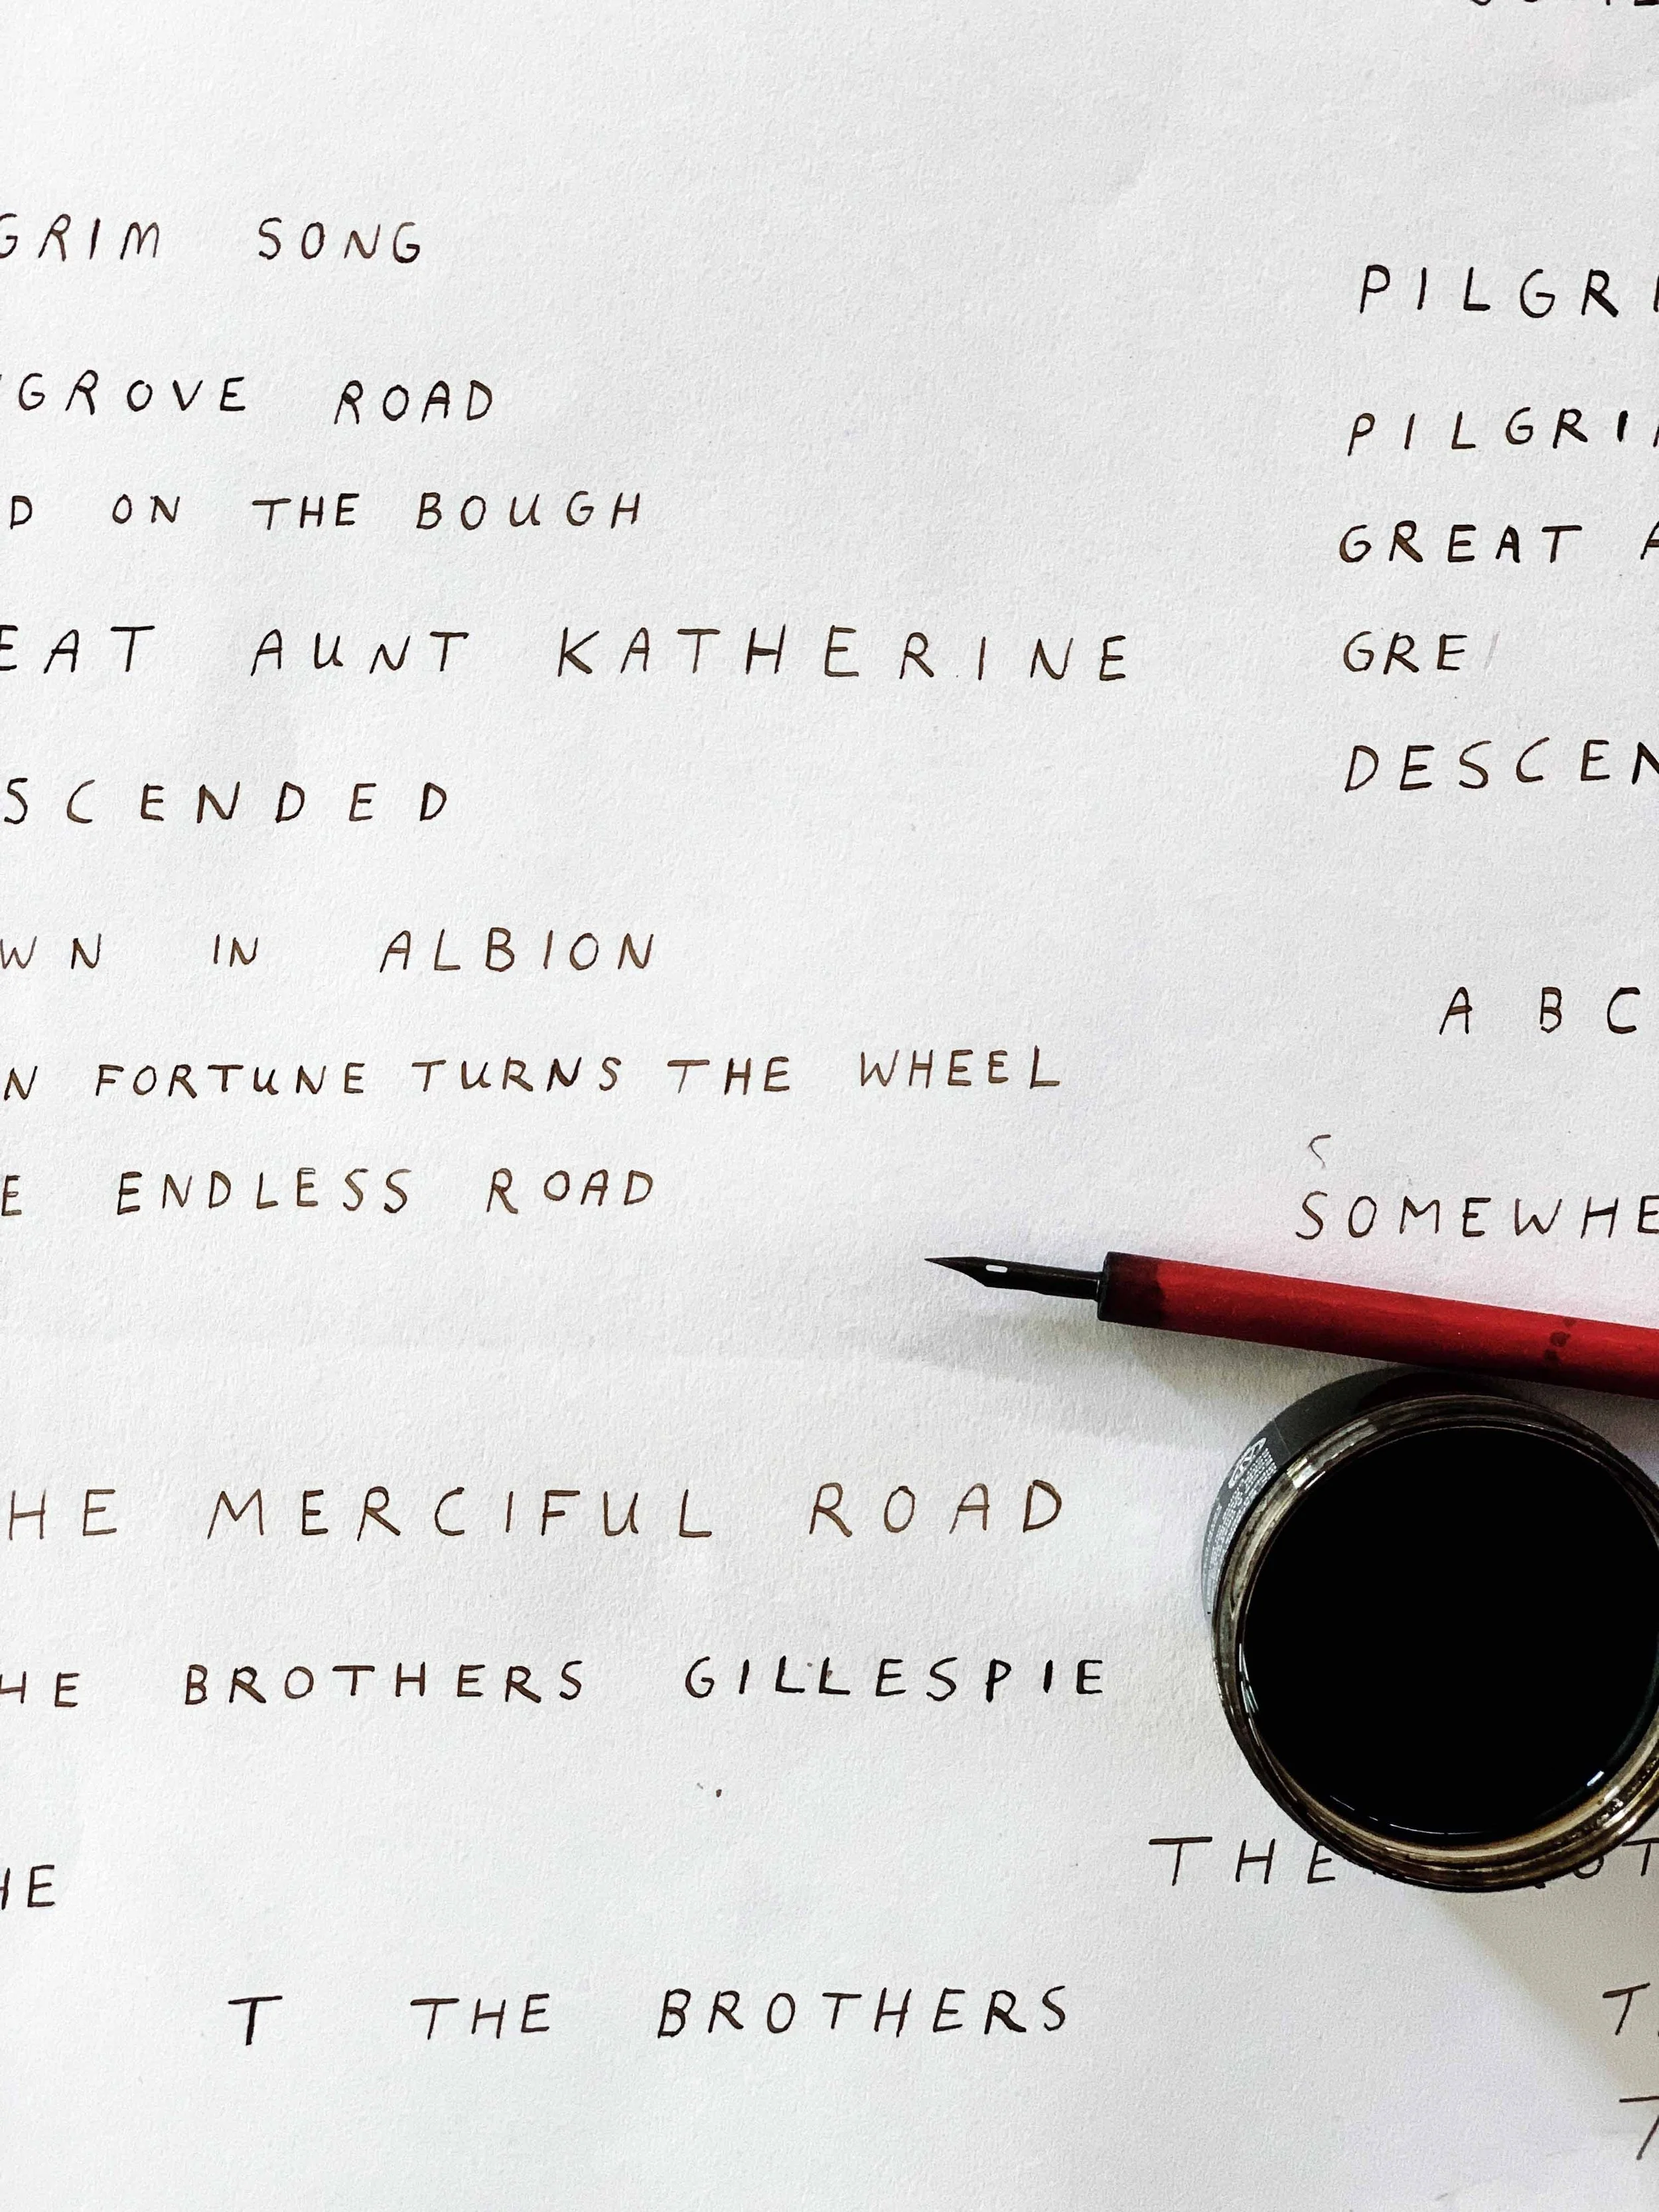 GRIM SONG
GROVE ROAD
D ON THE BOUGH
EAT AUNT KATHERINE
SCENDED
WN IN ALBION
N FORTUNE TURNS THE WHEEL
E ENDLESS ROAD
HE MERCIFUL ROAD
HE BROTHERS GILLESPIE
HE
T THE BROTHERS
PILGRI
PILGRIM
GREAT A
GRE
DESCEN
A B C
S
SOMEWHE
THE
T
T